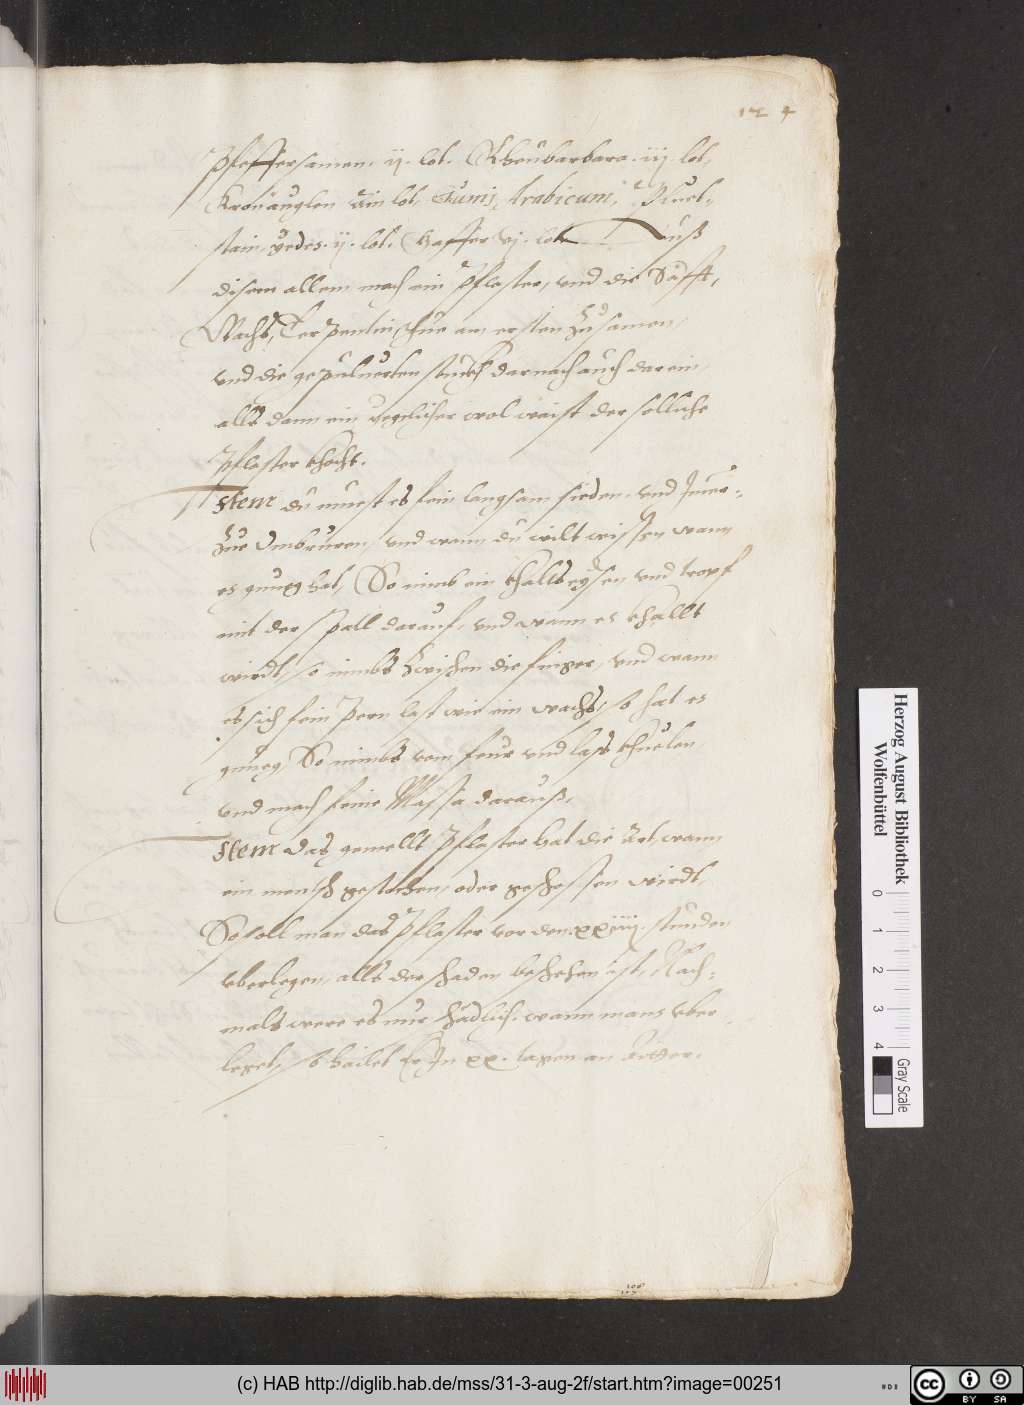 124
Pfeffersamen. ij. lot. Rheubarbara. iij. lot,
Kronäuglen ein lot, Gumj, Arabicum, Pluet-
stain, yedes. ij. lot. Saffer vj. lot. Auß
disem allem mach ein Pflaster, vnd die Säfft,
Wachs, Terpentin, thue am ersten Zusamen,
vnd die gepuluerten stuckh darnach auch darein,
alls dann ein yegelicher wol waist der solliche
Pflaster khocht.
Item du muest es fein langsam sieden, vnd Jmer-
Zue Vmbrueren, vnd wann du wilt wissen wann
es gnueg hat, So nimb ein khallts eysen vnd tropf
mit der Spatl darauf, vnd wann es khallt
wirdt, so nimbs Zwischen die finger, vnd wann
es sich fein Pern last wie ein wachs, so hat es
gnueg, So nimbs vom feur vnd lass khuelen,
vnd mach feine Massa darauß,
Item das gemellt Pflaster hat die Art, wann
ein mensch gestochen, oder geschossen wirdt,
So soll man das Pflaster vor den xxiiij. stunden
vberlegen, alls der schaden beschehen ist, Nach-
mals were es nur schädlich. wann mans vber
leget, so hailet Er Jn xx. tagen an Aitter.
Herzog August Bibliothek
Wolfenbüttel
0 1 2 3 4
Gray Scale
(c) HAB http://diglib.hab.de/mss/31-3-aug-2f/start.htm?image=00251
cc BY SA